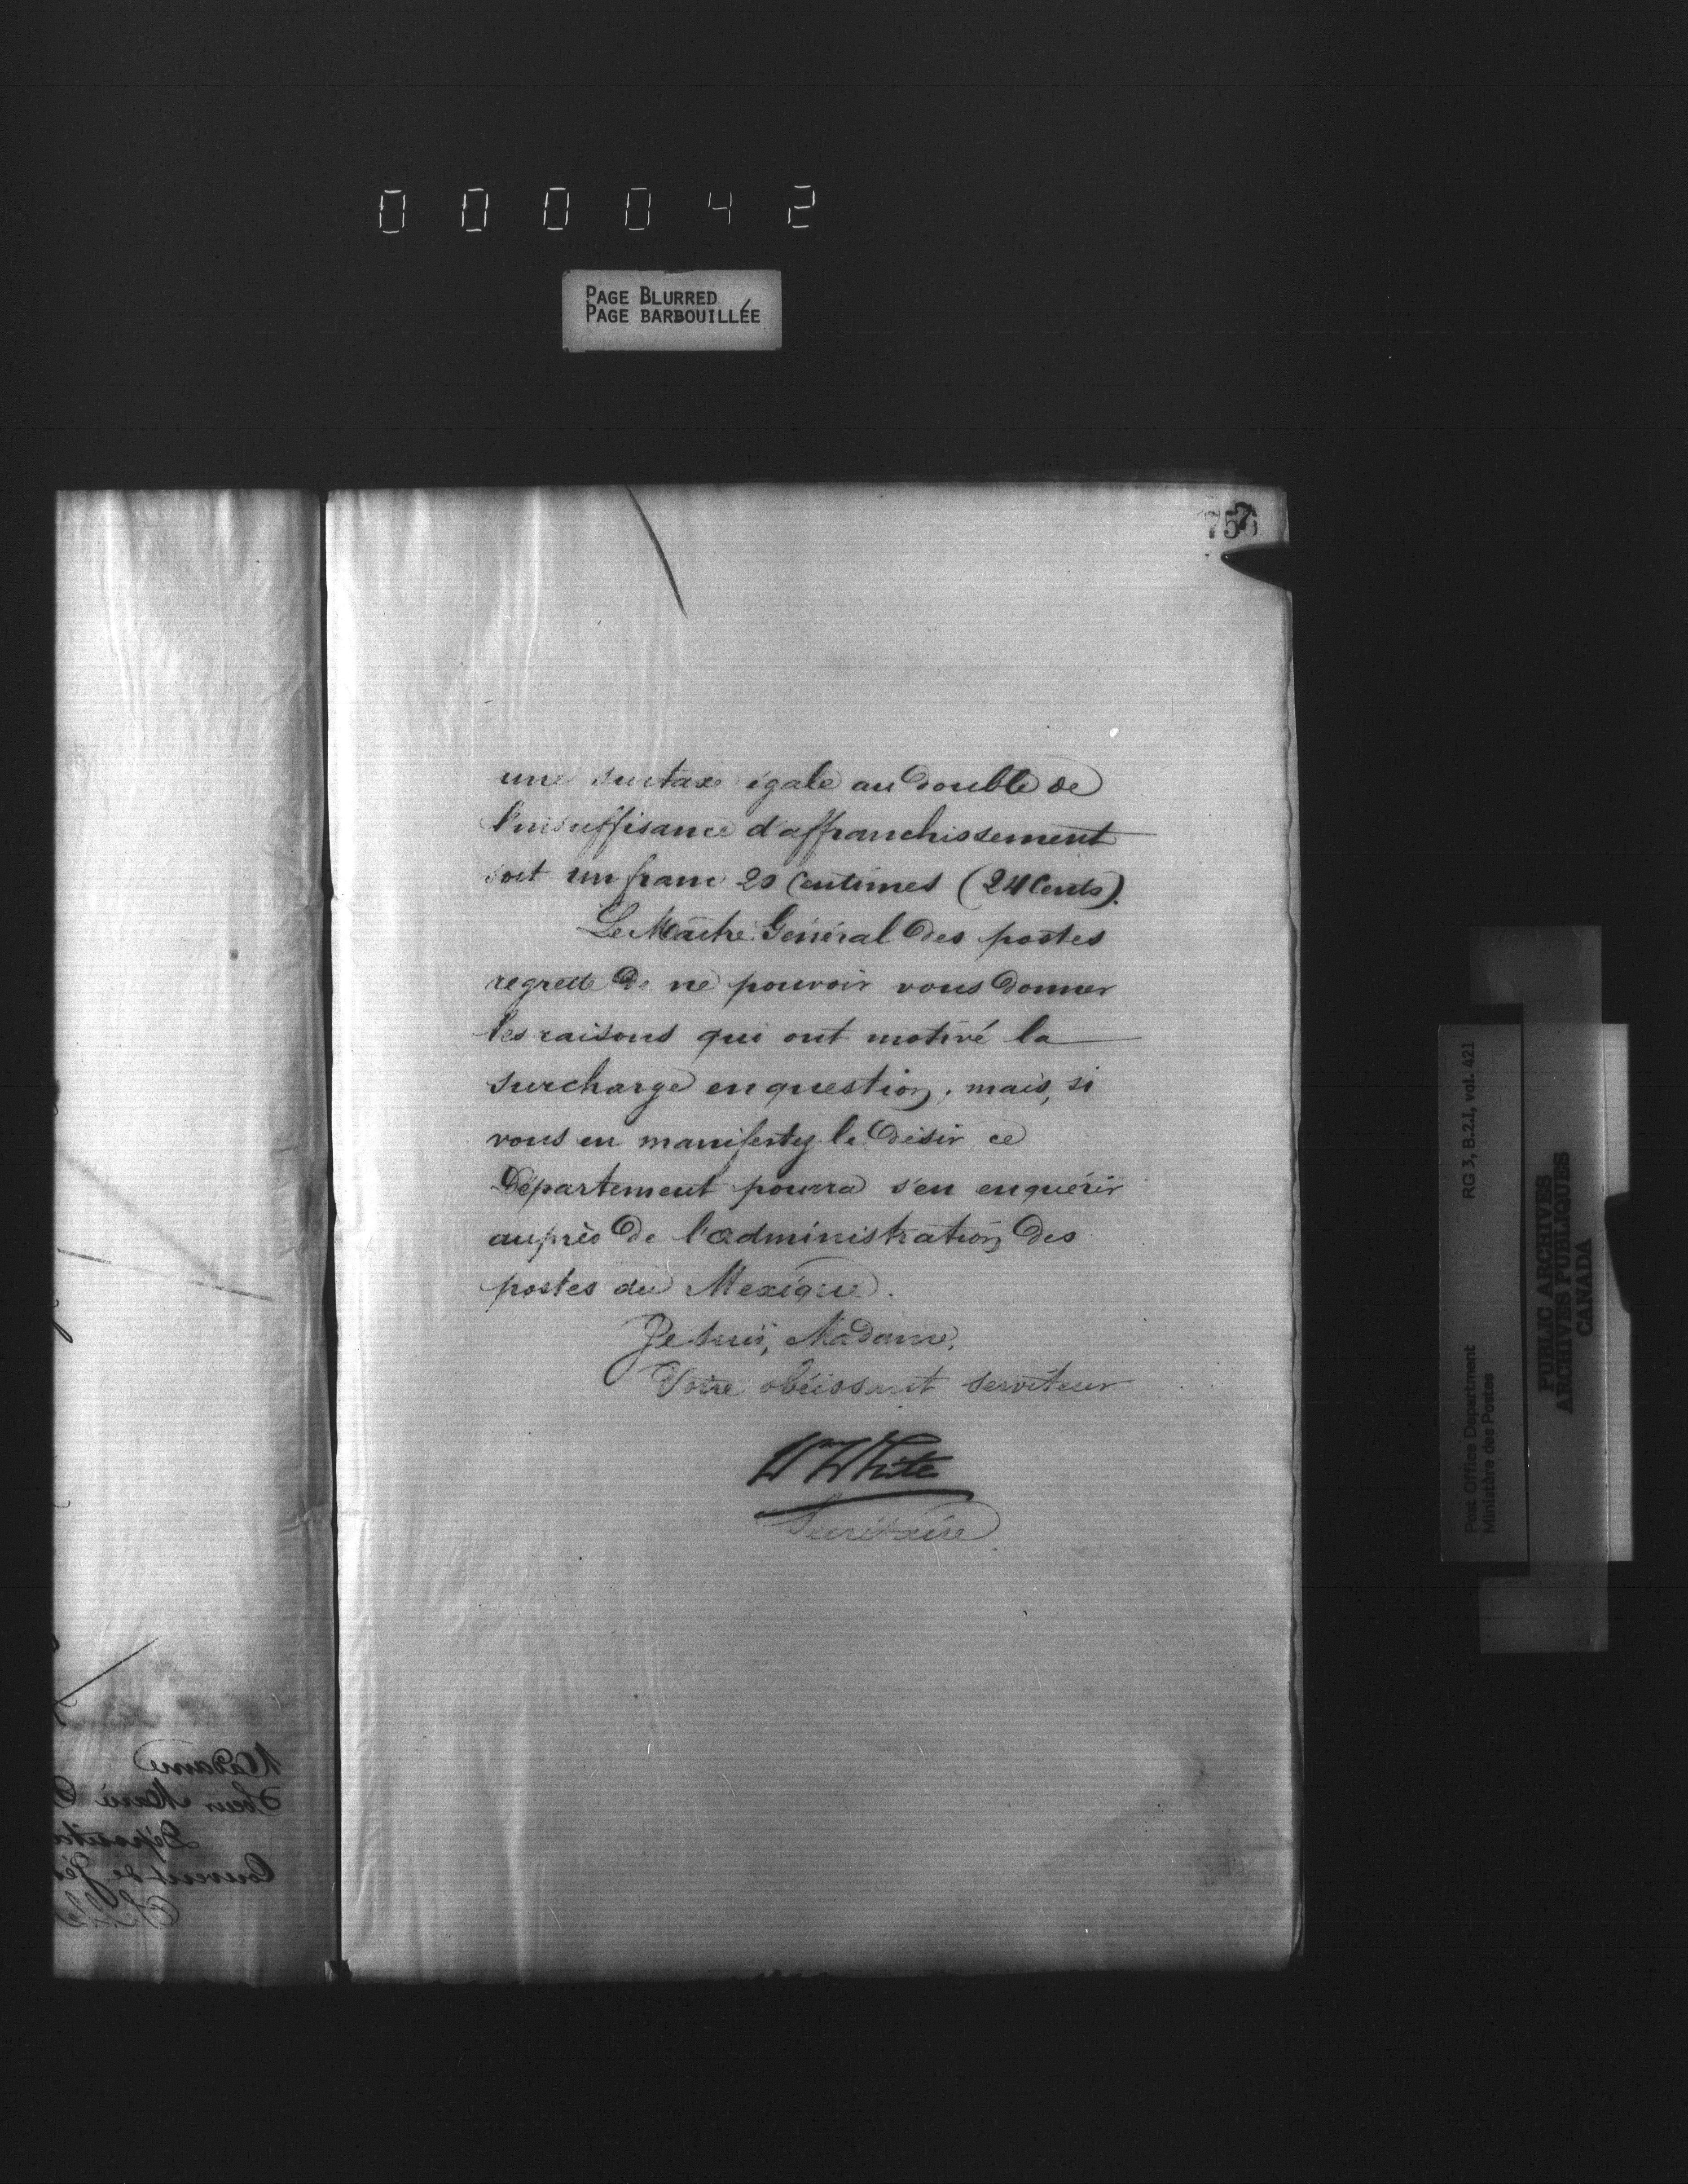 0 0 0 0 4 2
PAGE BLURRED
PAGE BARBOUILLÉE
757
une surtaxe égale au double de
l'insuffisance d'affranchissement
soit un franc 20 Centimes (24 Cents).
Le Maitre Général des postes
regrette de ne pouvoir vous donner
les raisons qui ont motivé la
surcharge en question, mais, si
vous en manifestez le désir ce
Département pourra s'en enquérir
auprès de l'administration des
postes du Mexique.
Je suis, Madame,
Votre obéissant serviteur
Wm White
Secrétaire
Madame
Soeur Marie
Couvent de
RG 3, B.2.I, vol. 421
Post Office Department
Ministère des Postes
PUBLIC ARCHIVES
ARCHIVES PUBLIQUES
CANADA